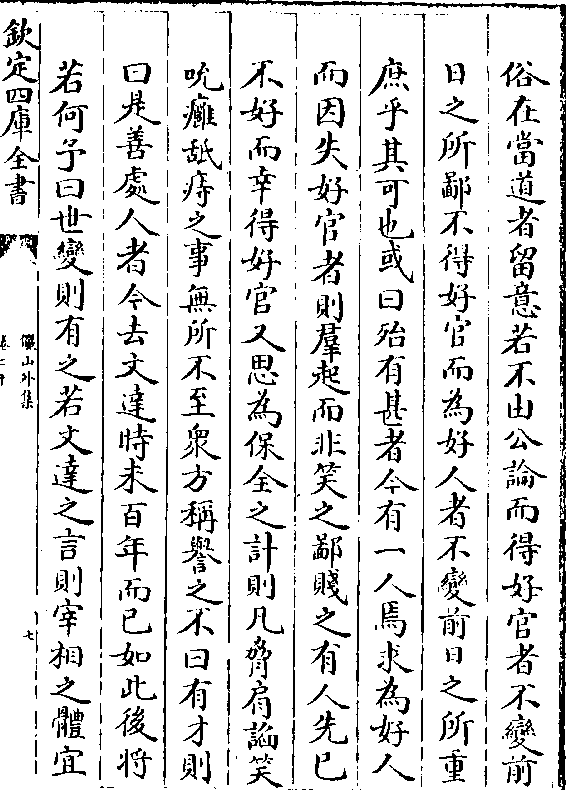 俗在當道者留意若不由公論而得好官者不變前
日之所鄙不得好官而為好人者不變前日之所重
庶乎其可也或曰殆有甚者今有一人焉求為好人
而因失好官者則羣起而非笑之鄙賤之有人先已
不好而幸得好官又思為保全之計則凡脅肩諂笑
吮癰舐痔之事無所不至衆方稱譽之不曰有才則
曰是善處人者今去文達時未百年而已如此後將
若何予曰世變則有之若文達之言則宰相之體宜
欽定四庫全書
儼山外集
七